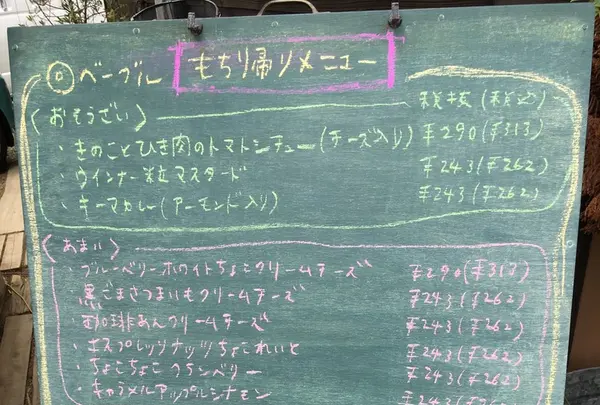 ◎ベーグル もちり帰りメニュー
〈おそうざい〉 税抜(税込)
・きのことひき肉のトマトシチュー(チーズ入り) ¥290(¥313)
・ウインナー粒マスタード ¥243(¥262)
・キーマカレー(アーモンド入り) ¥243(¥262)
〈あまい〉
・ブルーベリーホワイトちょこクリームチーズ ¥290(¥313)
黒ごまさつまいもクリームチーズ ¥243(¥262)
・珈琲あんクリームチーズ ¥243(¥262)
・エスプレッソナッツちょこれいと ¥243(¥262)
・ちょこちょこクランベリー ¥243(¥262)
・きゃらメルアップルシナモン ¥243(¥262)